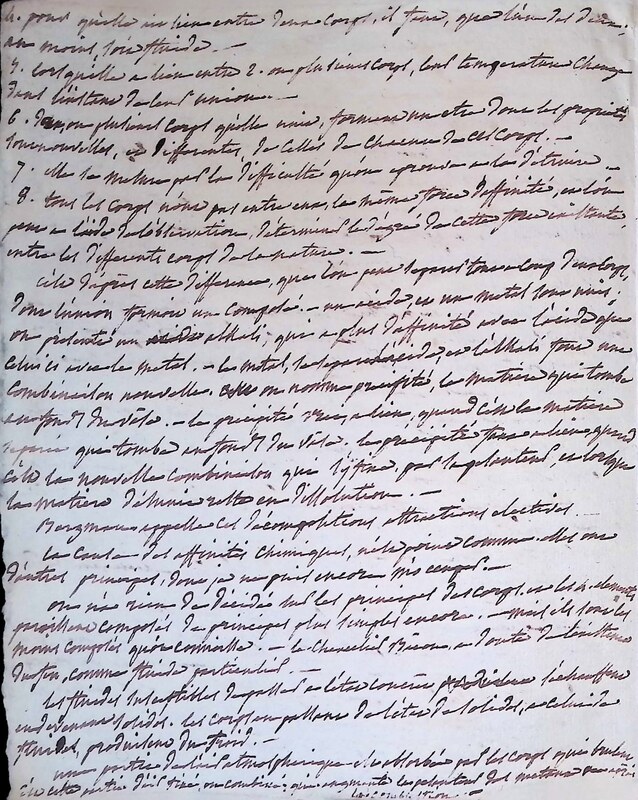 4. pour qu'elle ait lieu entre deux corps, il faut, que l'un des deux
au moins, soit fluide. —
5. lorsqu'elle a lieu entre 2. ou plusieurs corps, leur temperature change
dans l'instant de leur union. —
6. deux, ou plusieurs corps qu'elle unit, forment un etre dont les proprietés
sont nouvelles, et differentes, de celles de chacun de ces corps. —
7. elle se mesure par la difficulté qu'on eprouve a la détruire —
8. tous les corps n'ont pas entre eux la même force d'affinité, et l'on
peut a l'aide de l'observation, déterminer le dégré de cette force
entre les differents corps de la nature. —
c'est d'après cette difference, que l'on peut separer tout a coup deux corps,
dont l'union formoit un composé. — un acide, et un metal sont unis,
on présente un alkali, qui a plus d'affinité avec l'acide que
celui ci avec le metal. — le metal, se separe de l'acide, et l'alkali fait une
combinaison nouvelle. on nomme precipité, la matiere qui tombe
au fond du vase. — le precipité vrai, a lieu, quand c'est la matiere
separée qui tombe au fond du vase. le précipité faux a lieu quand
c'est la nouvelle combinaison qui par la pesanteur, et lorsque
la matiere désunie reste en dissolution. —
Bergman appelle ces décompositions attractions electives.
la cause des affinités chimiques, n'est point connue. elles ont
d'autres principes, dont je ne puis encore m'occuper. —
on n'a rien de décidé sur les principes des corps, et les 4 elements
paroissent composés de principes plus simples encore. — mais ils sont les
moins composés qu'on connoisse. — le chevalier a douté de l'existence
du feu, comme fluide particulier. —
les fluides susceptibles de passer a l'état concret s'échauffent
en devenant solides. les corps en passant de l'état de solides, a celui de
fluides, produisent du froid. —
une partie de l'air atmospherique est absorbée par les corps qui brulent
c'est cette partie d'air fixé, ou combiné, qui augmente la pesanteur des metaux
la combustion. —